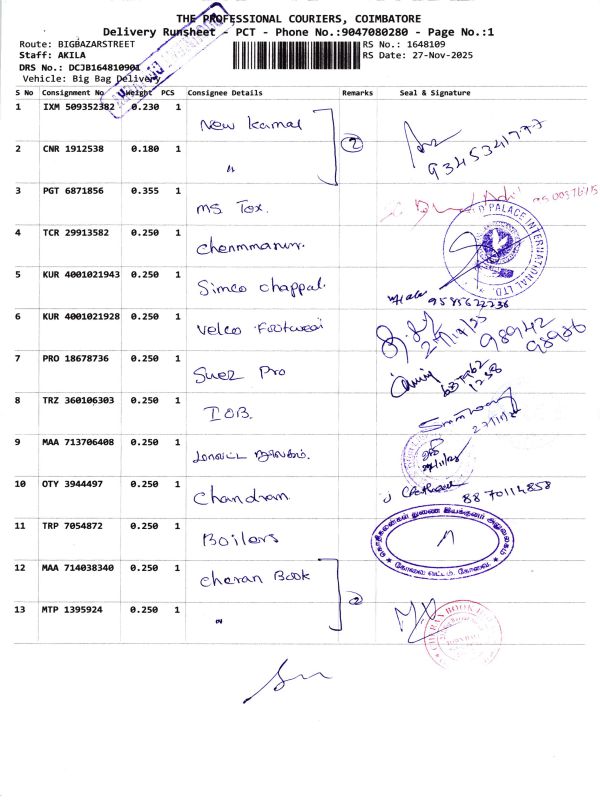 THE PROFESSIONAL COURIERS, COIMBATORE
Delivery Runsheet - PCT - Phone No.:9047080280 - Page No.:1
Route: BIGBAZARSTREET RS No.: 1648109
Staff: AKILA RS Date: 27-Nov-2025
DRS No.: DCJB164810901
Vehicle: Big Bag Delivery
S No Consignment No Weight PCS Consignee Details Remarks Seal & Signature
1 IXM 509352382 0.230 1 New Kamal 2
9345341797
2 CNR 1912538 0.180 1 "
3 PGT 6871856 0.355 1 ms Tex.
4 TCR 29913582 0.250 1
PALACE INTERNATIONAL LTD.
5 KUR 4001021943 0.250 1 Simco chappal.
9585622236
6 KUR 4001021928 0.250 1 Velco Footwear
98942
98986
7 PRO 18678736 0.250 1 Suez Pro
8 TRZ 360106303 0.250 1 IOB.
9 MAA 713706408 0.250 1 மாவட்ட நூலகம்.
10 OTY 3944497 0.250 1 Chandran
8870114858
11 TRP 7054872 0.250 1 Boilers
12 MAA 714038340 0.250 1 Cheran Book 2
13 MTP 1395924 0.250 1 "